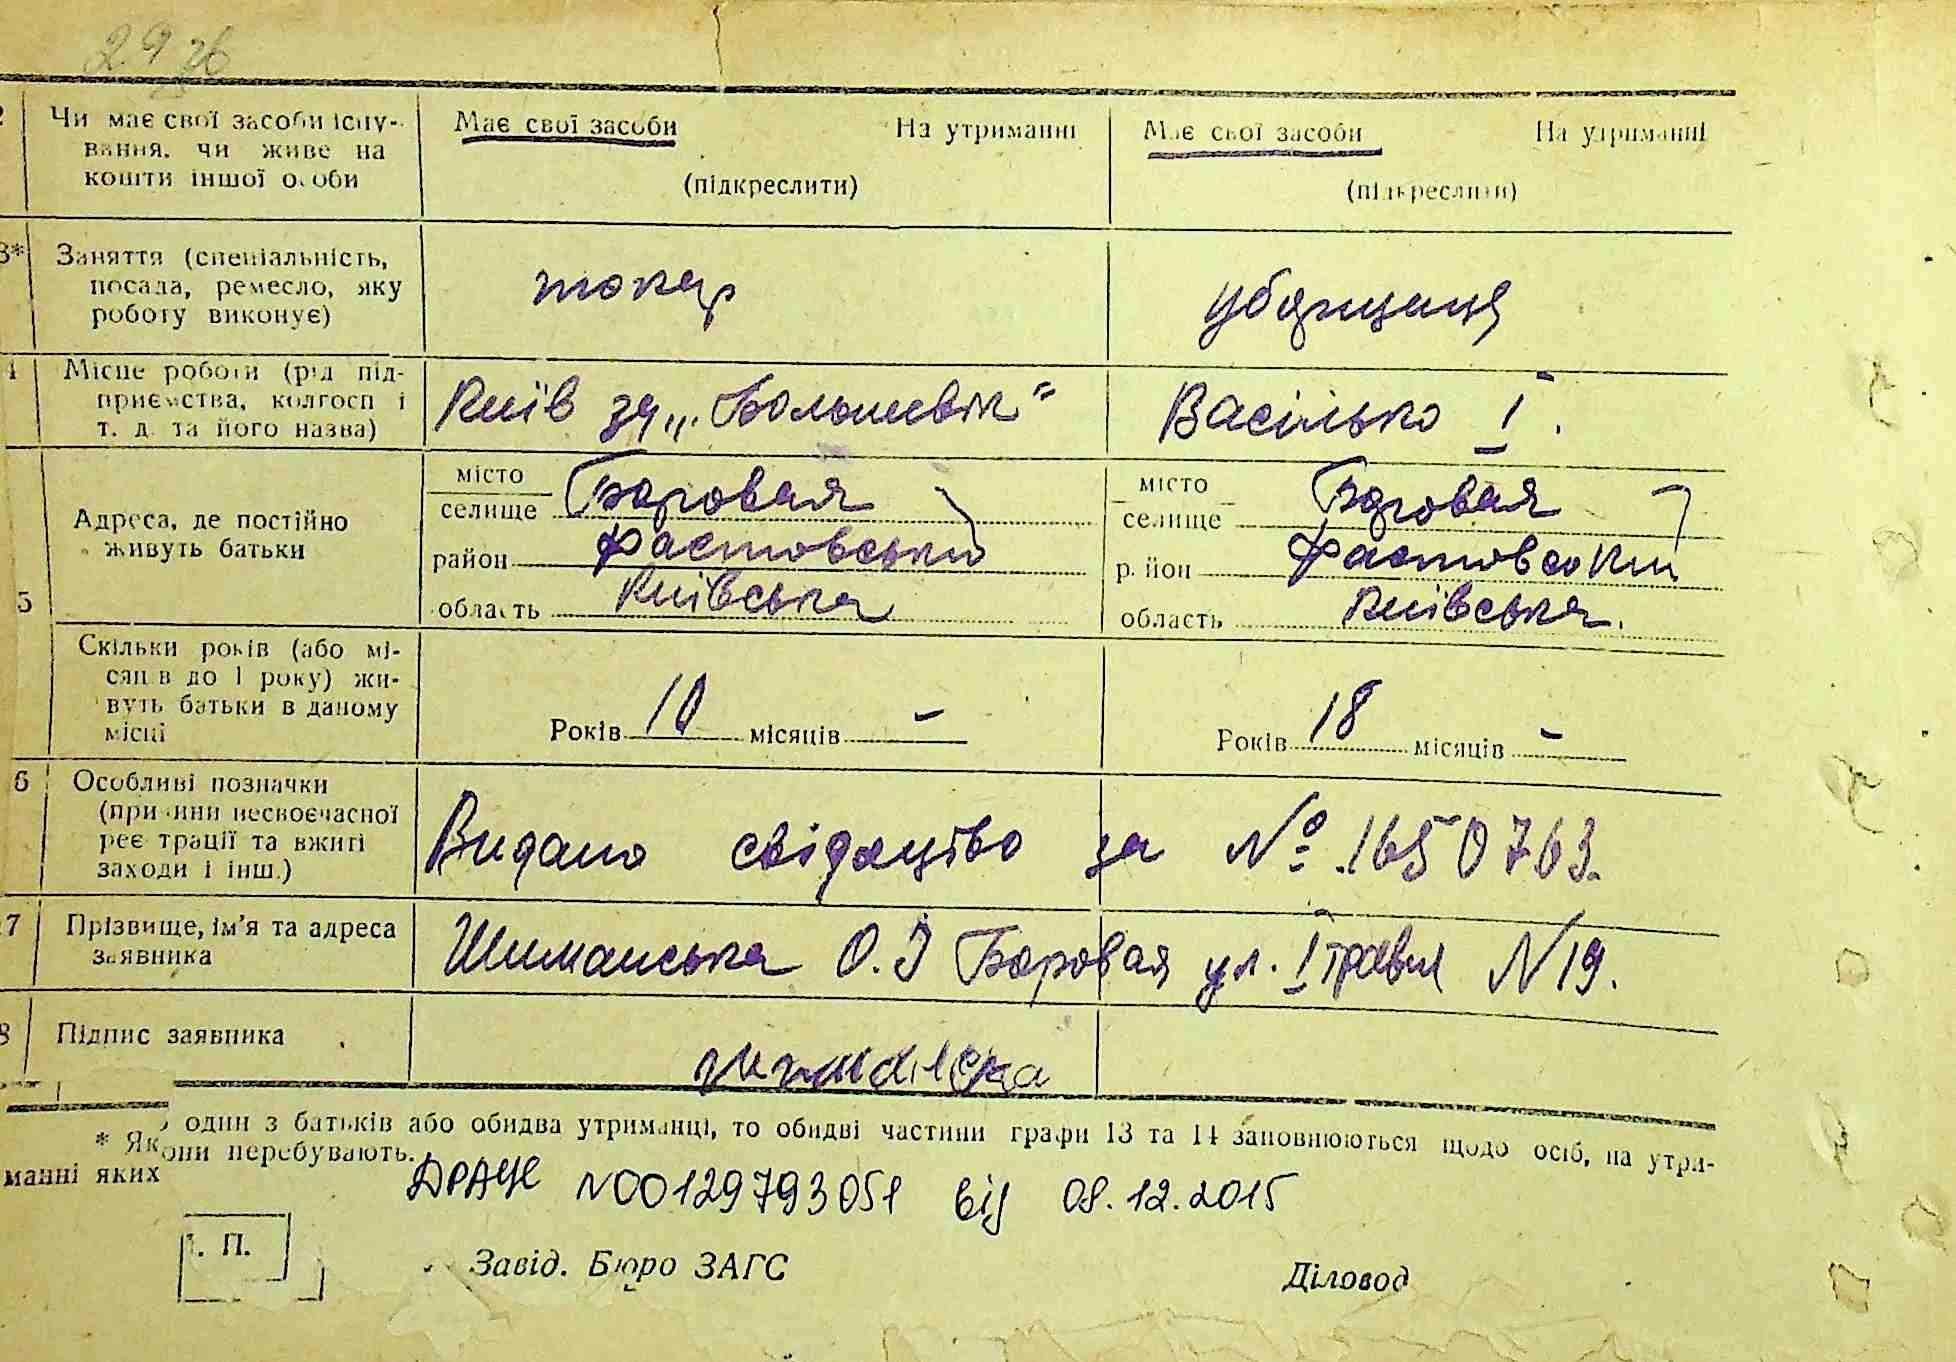 2976
Чи має свої засоби існу-
вання, чи живе на
кошти іншої особи
Має свої засоби На утриманні
(підкреслити)
Має свої засоби На утриманні
(підкреслити)
3* Заняття (спеціальність,
посада, ремесло, яку
роботу виконує)
токар
уборщиця
4 Місце роботи (рід під-
приємства, колгосп і
т. д. та його назва)
Київ з-д „Большевік"
Васілько I.
5 Адреса, де постійно
живуть батьки
місто
селище Боровая
район Фастовський
область Київська
місто
селище Боровая
район Фастовський
область Київська.
Скільки років (або мі-
сяців до 1 року) жи-
вуть батьки в даному
місці
Років 10 місяців –
Років 18 місяців –
6 Особливі позначки
(причини несвоєчасної
реєстрації та вжиті
заходи і інш.)
Видано свідоцтво за № 1650763.
7 Прізвище, ім'я та адреса
заявника
Шиманська О.І Боровая ул. I травня N 19.
8 Підпис заявника
один з батьків або обидва утриманці, то обидві частини графи 13 та 14 заповнюються щодо осіб, на утри-
* Як
они перебувають.
манні яких
ДРАЦС N00129793051 від 08.12.2015
. П.
Завід. Бюро ЗАГС Діловод